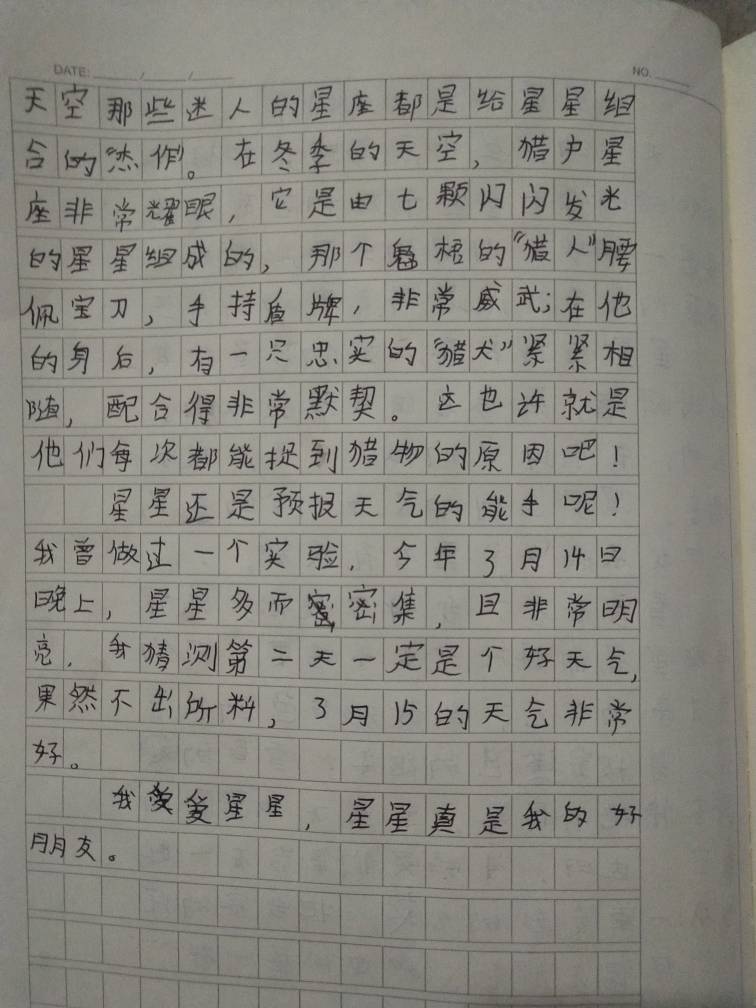 DATE: ____/____/____ NO. ____
天空那些迷人的星座都是给星星组
合的“杰作”。在冬季的天空，猎户星
座非常耀眼，它是由七颗闪闪发光
的星星组成的，那个魁梧的“猎人”腰
佩宝刀，手持盾牌，非常威武；在他
的身后，有一只忠实的“猎犬”紧紧相
随，配合得非常默契。这也许就是
他们每次都能捉到猎物的原因吧！
星星还是预报天气的能手呢！
我曾做过一个实验，今年3月14日
晚上，星星多而密密集，且非常明
亮，我猜测第二天一定是个好天气，
果然不出所料，3月15的天气非常
好。
我爱星星，星星真是我的好
朋友。